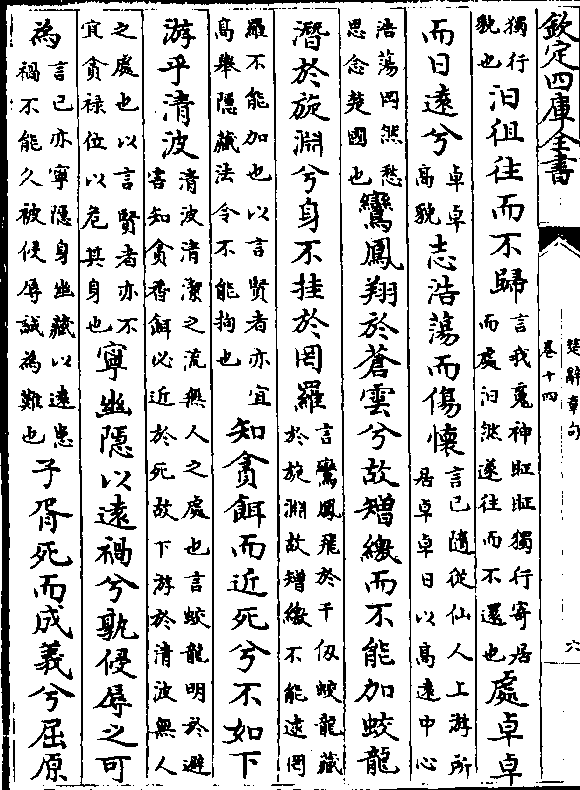 欽定四庫全書
楚辭章句
卷十四
六
獨行貌也汨徂往而不歸言我魂神眐眐獨行寄居而處汨然遂往而不還也處卓卓
而日遠兮卓卓高貌志浩蕩而傷懷言已隨從仙人上游所居卓卓日以高遠中心
浩蕩罔然愁思念楚國也鸞鳳翔於蒼雲兮故矰繳而不能加蛟龍
潛於旋淵兮身不挂於罔羅言鸞鳳飛於千仭蛟龍藏於旋淵故矰繳不能逮罔
羅不能加也以言賢者亦宜高舉隱藏法令不能拘也知貪餌而近死兮不如下
游乎清波清波清潔之流無人之處也言蛟龍明於避害知貪香餌必近於死故下游於清波無人
之處也以言賢者亦不宜貪祿位以危其身也寧幽隱以遠禍兮孰侵辱之可
為言已亦寧隱身幽藏以遠患禍不能久被侵辱誠為難也子胥死而成義兮屈原